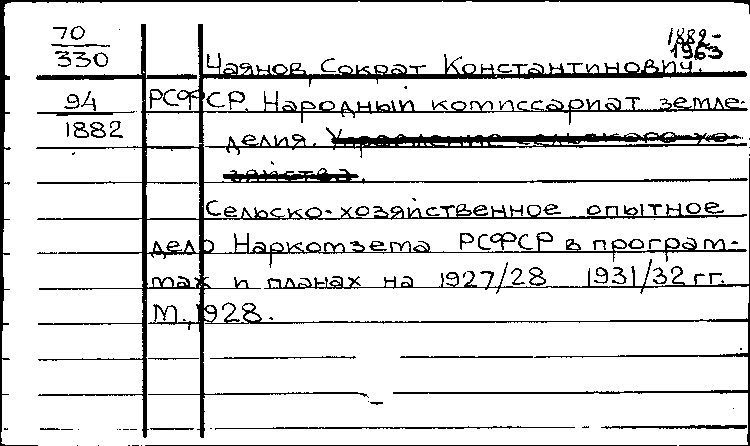 70
330
1882-
1963
Чаянов, Сократ Константинович.
94
1882
РСФСР. Народный комиссариат земле-
делия. Управление сельского хо-
зяйства.
Сельско-хозяйственное опытное
дело Наркомзема РСФСР в програм-
мах и планах на 1927/28 1931/32 гг.
М., 1928.